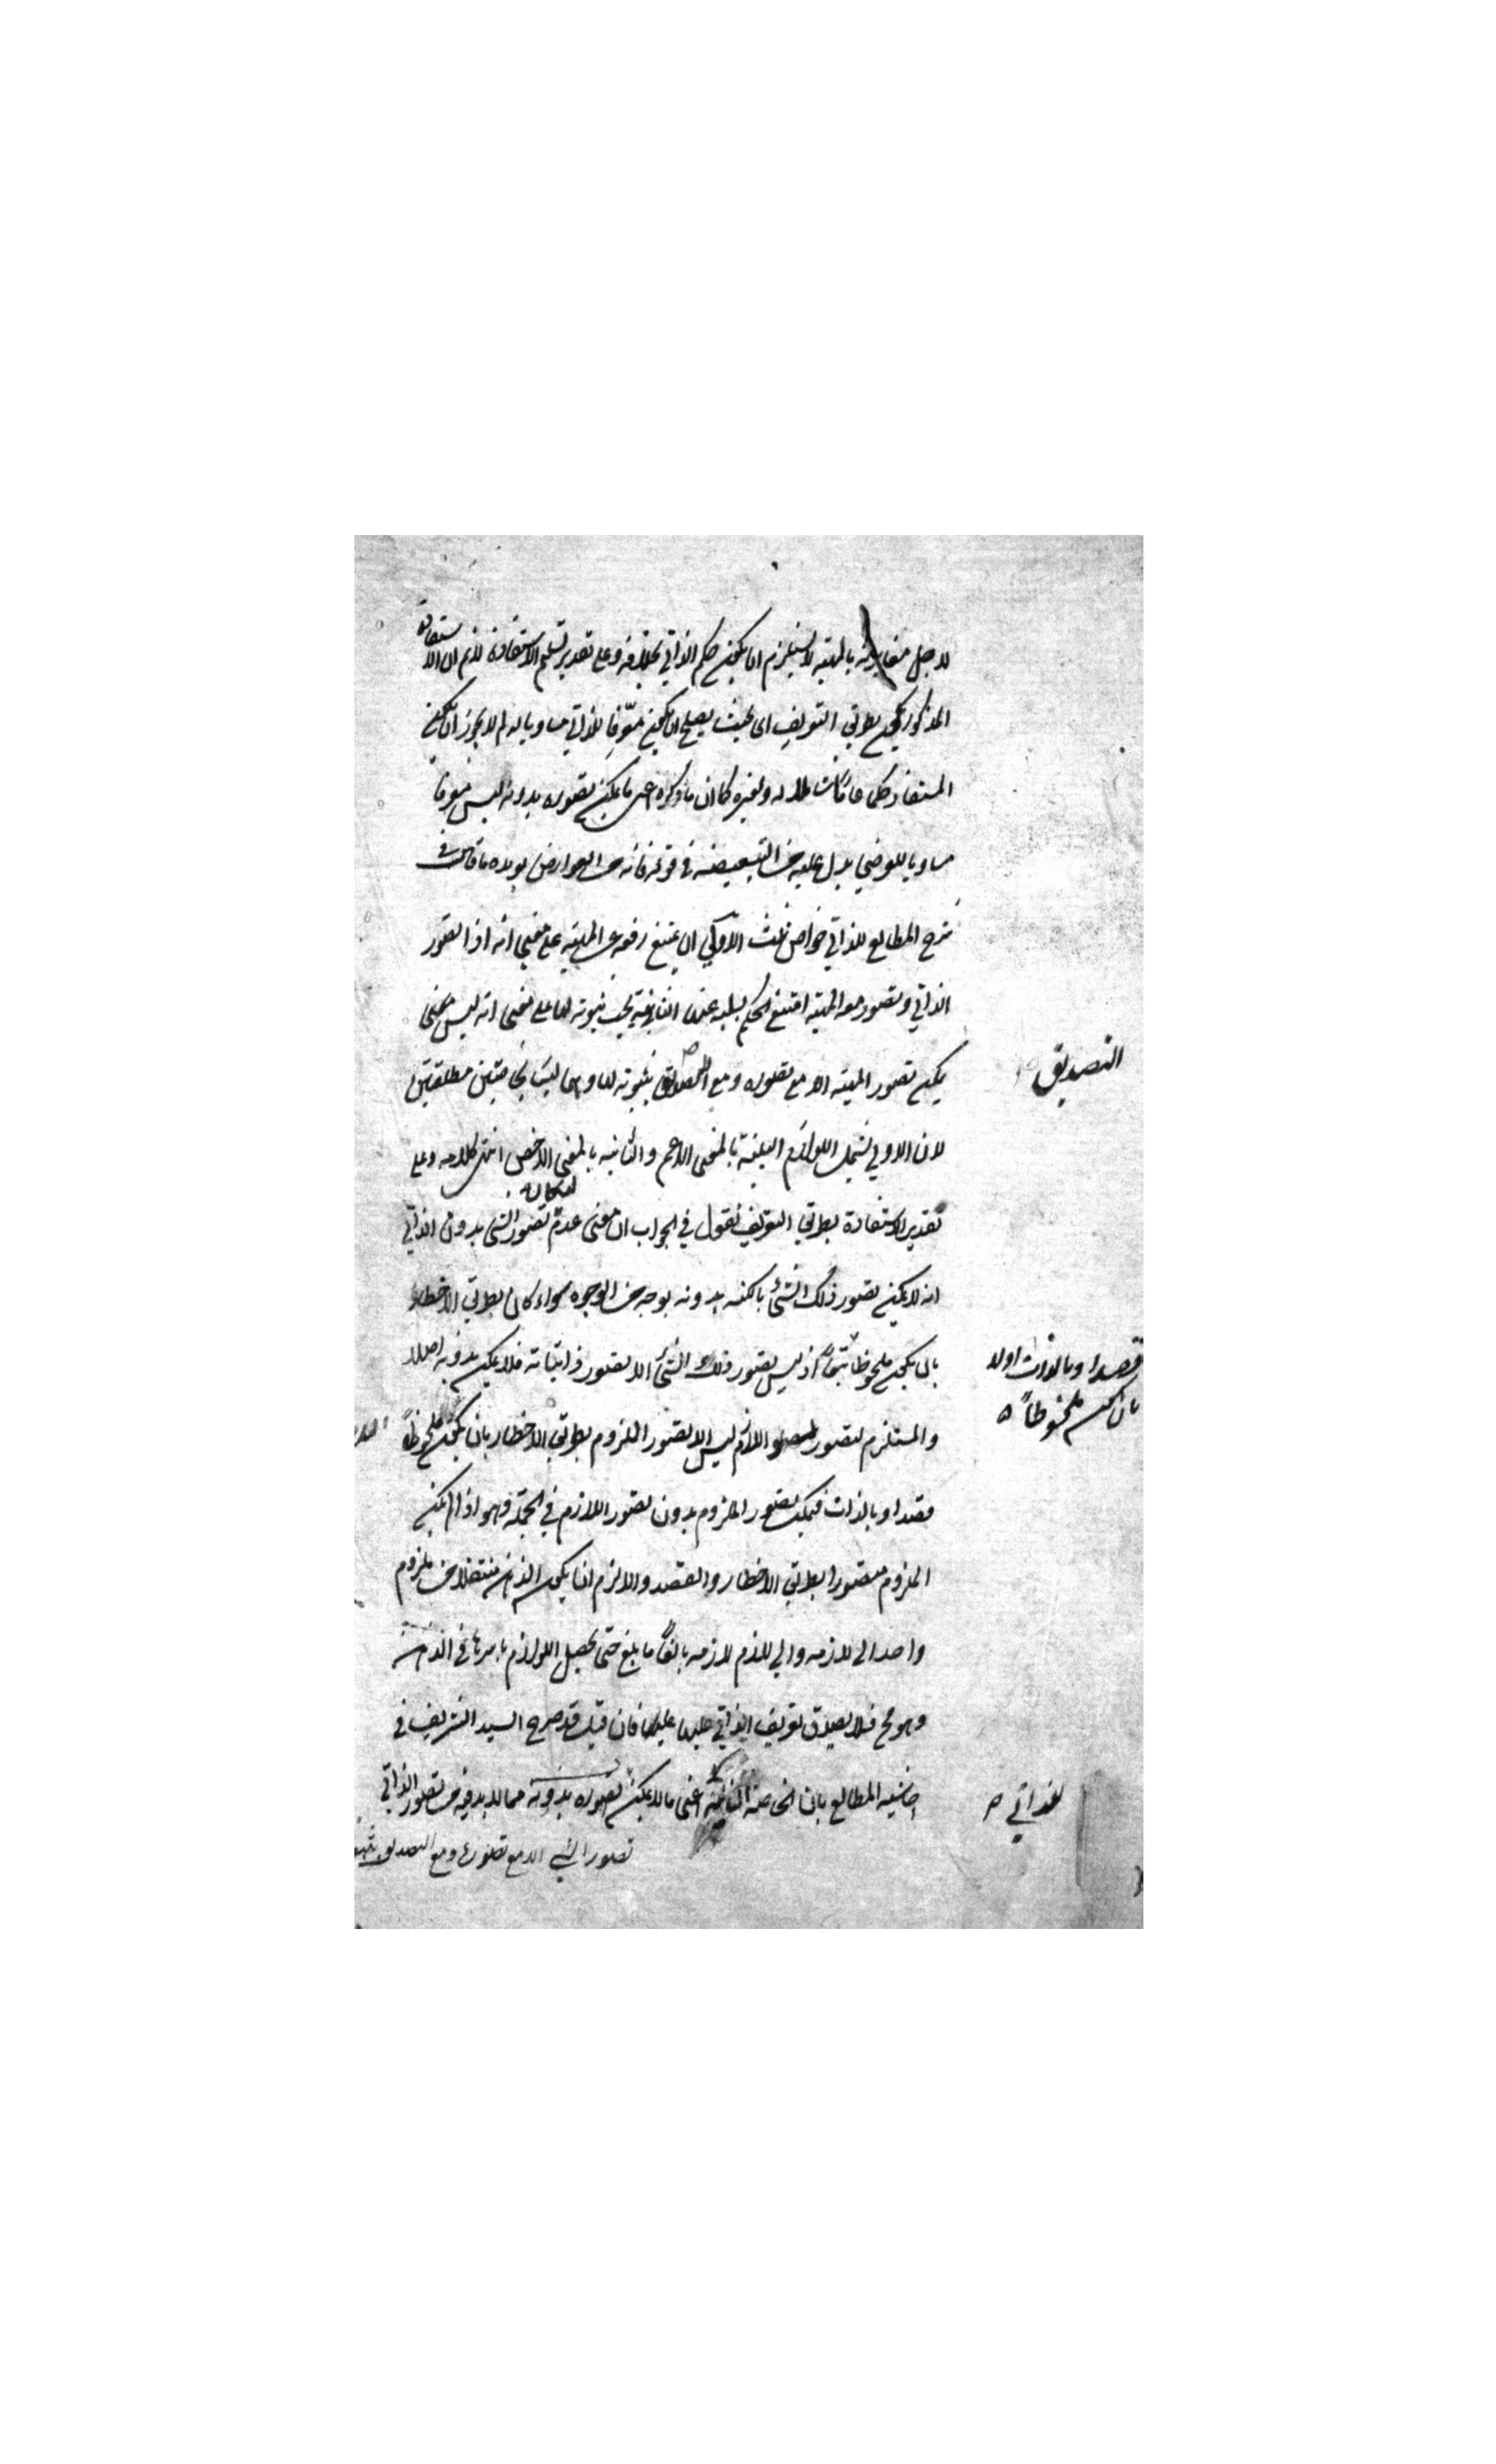 لاجل مقارنته بالمهية لا يستلزم ان يكون حكم الذاتي بخلافه وعلى تقدير تسليم الاستفادة لا نم ان الاستفادة
المذكور يكون بطريق التعريف اى بحيث يصلح ان يكون معرفا للذاتي مساويا له لم لا يجوز ان يكون
المستفاد حكما عاما شاملا له ولغيره كما ان ما ذكره اعنى ما يمكن تصوره بدونه ليس معرفا
مساويا للعرضي يدل عليه من التبعيضية في قوله فانه من العوارض يويده ما قال في
شرح المطالع للذاتي خواص ثلث الاولى ان يمتنع رفعه عن المهية على معنى انه اذا تصور
الذاتي وتصور معه المهية امتنع الحكم بسلبه عنها الثانية يجب ثبوته لها على معنى انه ليس
يمكن تصور المهية الا مع تصوره ومع التصديق بثبوته لها وهما ليستا بخاصتين مطلقتين
التصديق
لان الاولى تشمل اللوازم البينة بالمعنى الاعم والثانية بالمعنى الاخص انتهى كلامه وعلى
تقدير الاستفادة بطريق التعريف نقول في الجواب ان معنى عدم امكان تصور الشئ بدون الذاتي
انه لا يمكن تصور ذلك الشئ بالكنه بدونه بوجه من الوجوه سواء كان بطريق الاخطار
قصدا وبالذات اولا
بان يكون ملحوظا تبعا اذ ليس تصور ذلك الشئ الا تصور ذاتياته فلا يمكن بدونه اصلا
بان يكون ملحوظا
والمستلزم لتصور اللازم ليس الا تصور الملزوم بطريق الاخطار بان يكون ملحوظا
قصدا وبالذات فيمكن تصور الملزوم بدون تصور اللازم في الجملة وهو اذا لم يكن
الملزوم متصورا بطريق الاخطار والقصد والا لزم ان يكون الذهن منتقلا من ملزوم
واحد الى لازمه والى لازم لازمه بالغا ما بلغ حتى يحصل اللوازم باسرها في الذهن
وهو مح فلا يصدق تعريف الذاتي عليها فان قيل قد صرح السيد الشريف في
حاشية المطالع بان الخاصة الثانية اعنى ما لا يمكن تصوره بدونه مما لا بد فيه من تصور الذاتي
للذاتي
تصور الشئ الا مع تصوره ومع التصديق